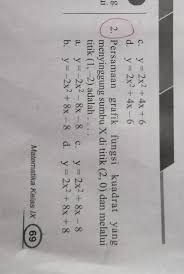 c. y = 2x² + 4x + 6
d. y = 2x² + 4x − 6
2. Persamaan grafik fungsi kuadrat yang
menyinggung sumbu X di titik (2, 0) dan melalui
titik (1, −2) adalah . . . .
a. y = −2x² − 8x − 8 c. y = 2x² + 8x − 8
b. y = −2x² + 8x − 8 d. y = 2x² + 8x + 8
Matematika Kelas IX 69